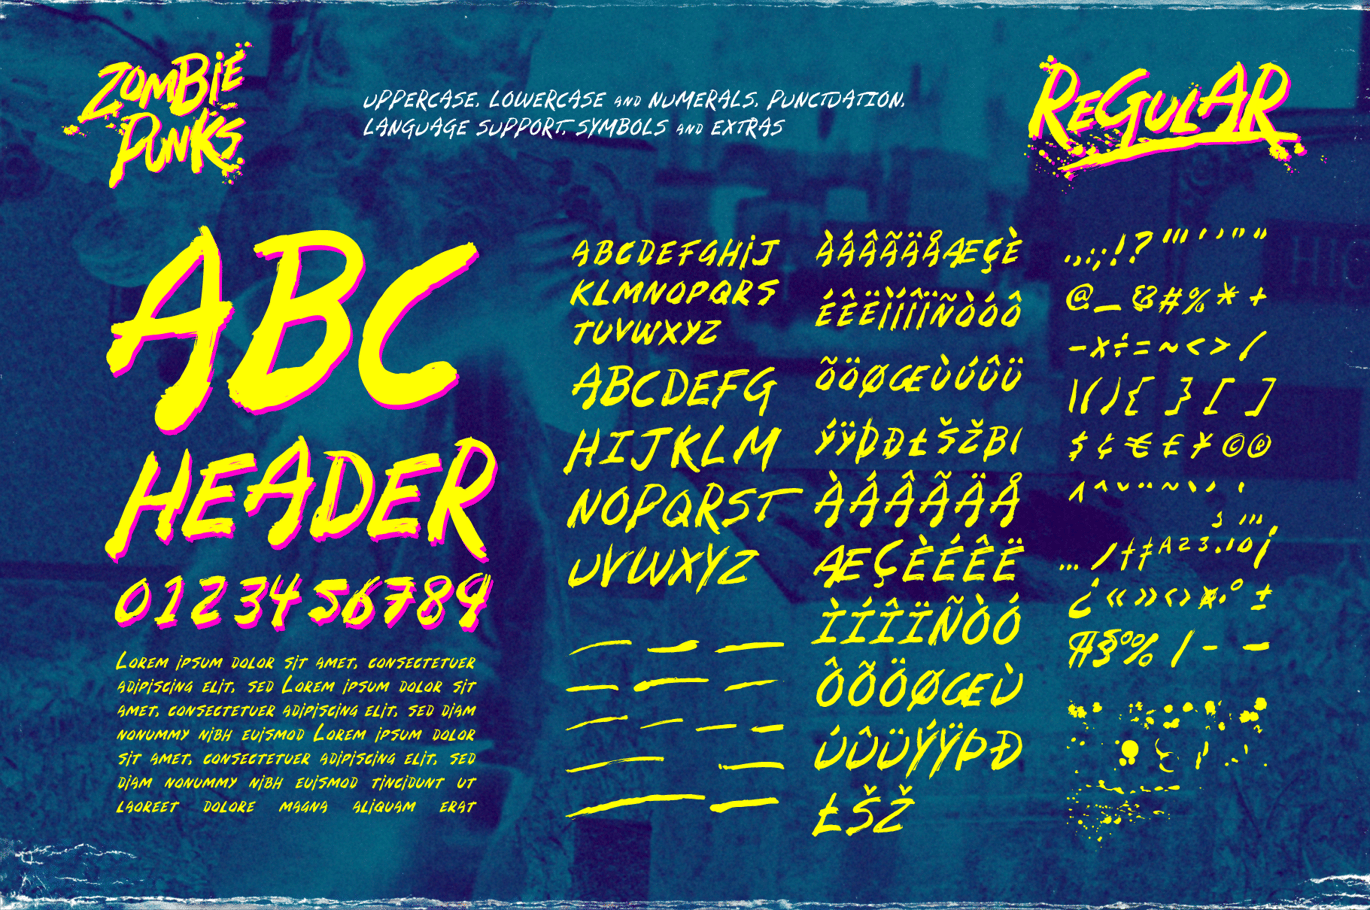 ZOMBIE
PUNKS
UPPERCASE, LOWERCASE AND NUMERALS, PUNCTUATION,
LANGUAGE SUPPORT, SYMBOLS AND EXTRAS
REGULAR
ABC
HEADER
0123456789
LOREM IPSUM DOLOR SIT AMET, CONSECTETUER
ADIPISCING ELIT, SED LOREM IPSUM DOLOR SIT
AMET, CONSECTETUER ADIPISCING ELIT, SED DIAM
NONUMMY NIBH EUISMOD LOREM IPSUM DOLOR
SIT AMET, CONSECTETUER ADIPISCING ELIT, SED
DIAM NONUMMY NIBH EUISMOD TINCIDUNT UT
LAOREET DOLORE MAGNA ALIQUAM ERAT
ABCDEFGHIJ
KLMNOPQRS
TUVWXYZ
ABCDEFG
HIJKLM
NOPQRST
UVWXYZ
ÀÁÂÃÄÅÆÇÈ
ÉÊËÌÍÎÏÑÒÓÔ
ÕÖØŒÙÚÛÜ
ÝŸÞÐŁŠŽßI
ÀÁÂÃÄÅ
ÆÇÈÉÊË
ÌÍÎÏÑÒÓ
ÔÕÖØŒÙ
ÚÛÜÝŸÞÐ
ŁŠŽ
.,:;!?"'''""
@_&#%*+
-×÷=~<>/
\(){}[]
$¢€£¥©®
^ˆ˘¨~`´'
…/†‡
¿«»‹›•°±
¶§%|-–